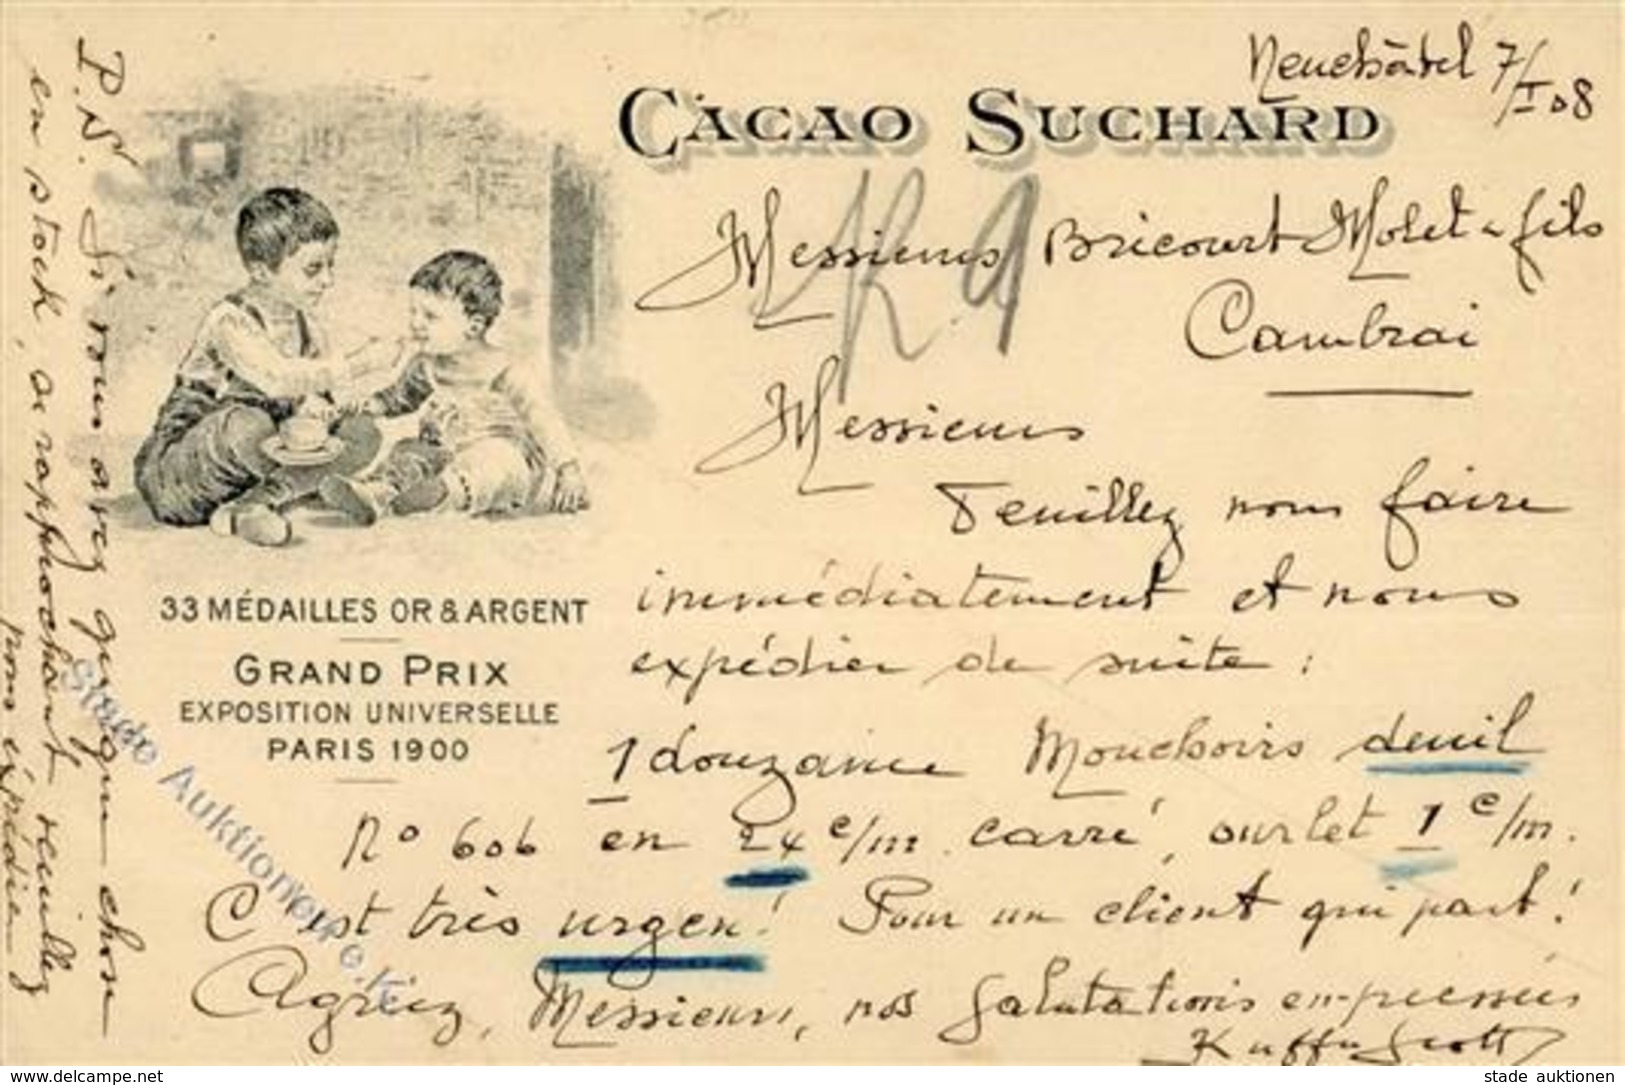 Neuchâtel 7/I 08
CACAO SUCHARD
Messieurs Bricourt Molet & fils
Cambrai
Messieurs
Veuillez nous faire
immédiatement et nous
expédier de suite :
1 douzaine Mouchoirs deuil
No 606 en 24 c/m carré, ourlet 1 c/m.
C'est très urgent! Pour un client qui part!
Agréez, Messieurs, nos Salutations empressées
33 MÉDAILLES OR & ARGENT
GRAND PRIX
EXPOSITION UNIVERSELLE
PARIS 1900
P.N. Si vous avez quelque chose
en stock, se rapprochant veuillez
nous expédier
Stade Auktionen
www.delcampe.net
stade auktionen